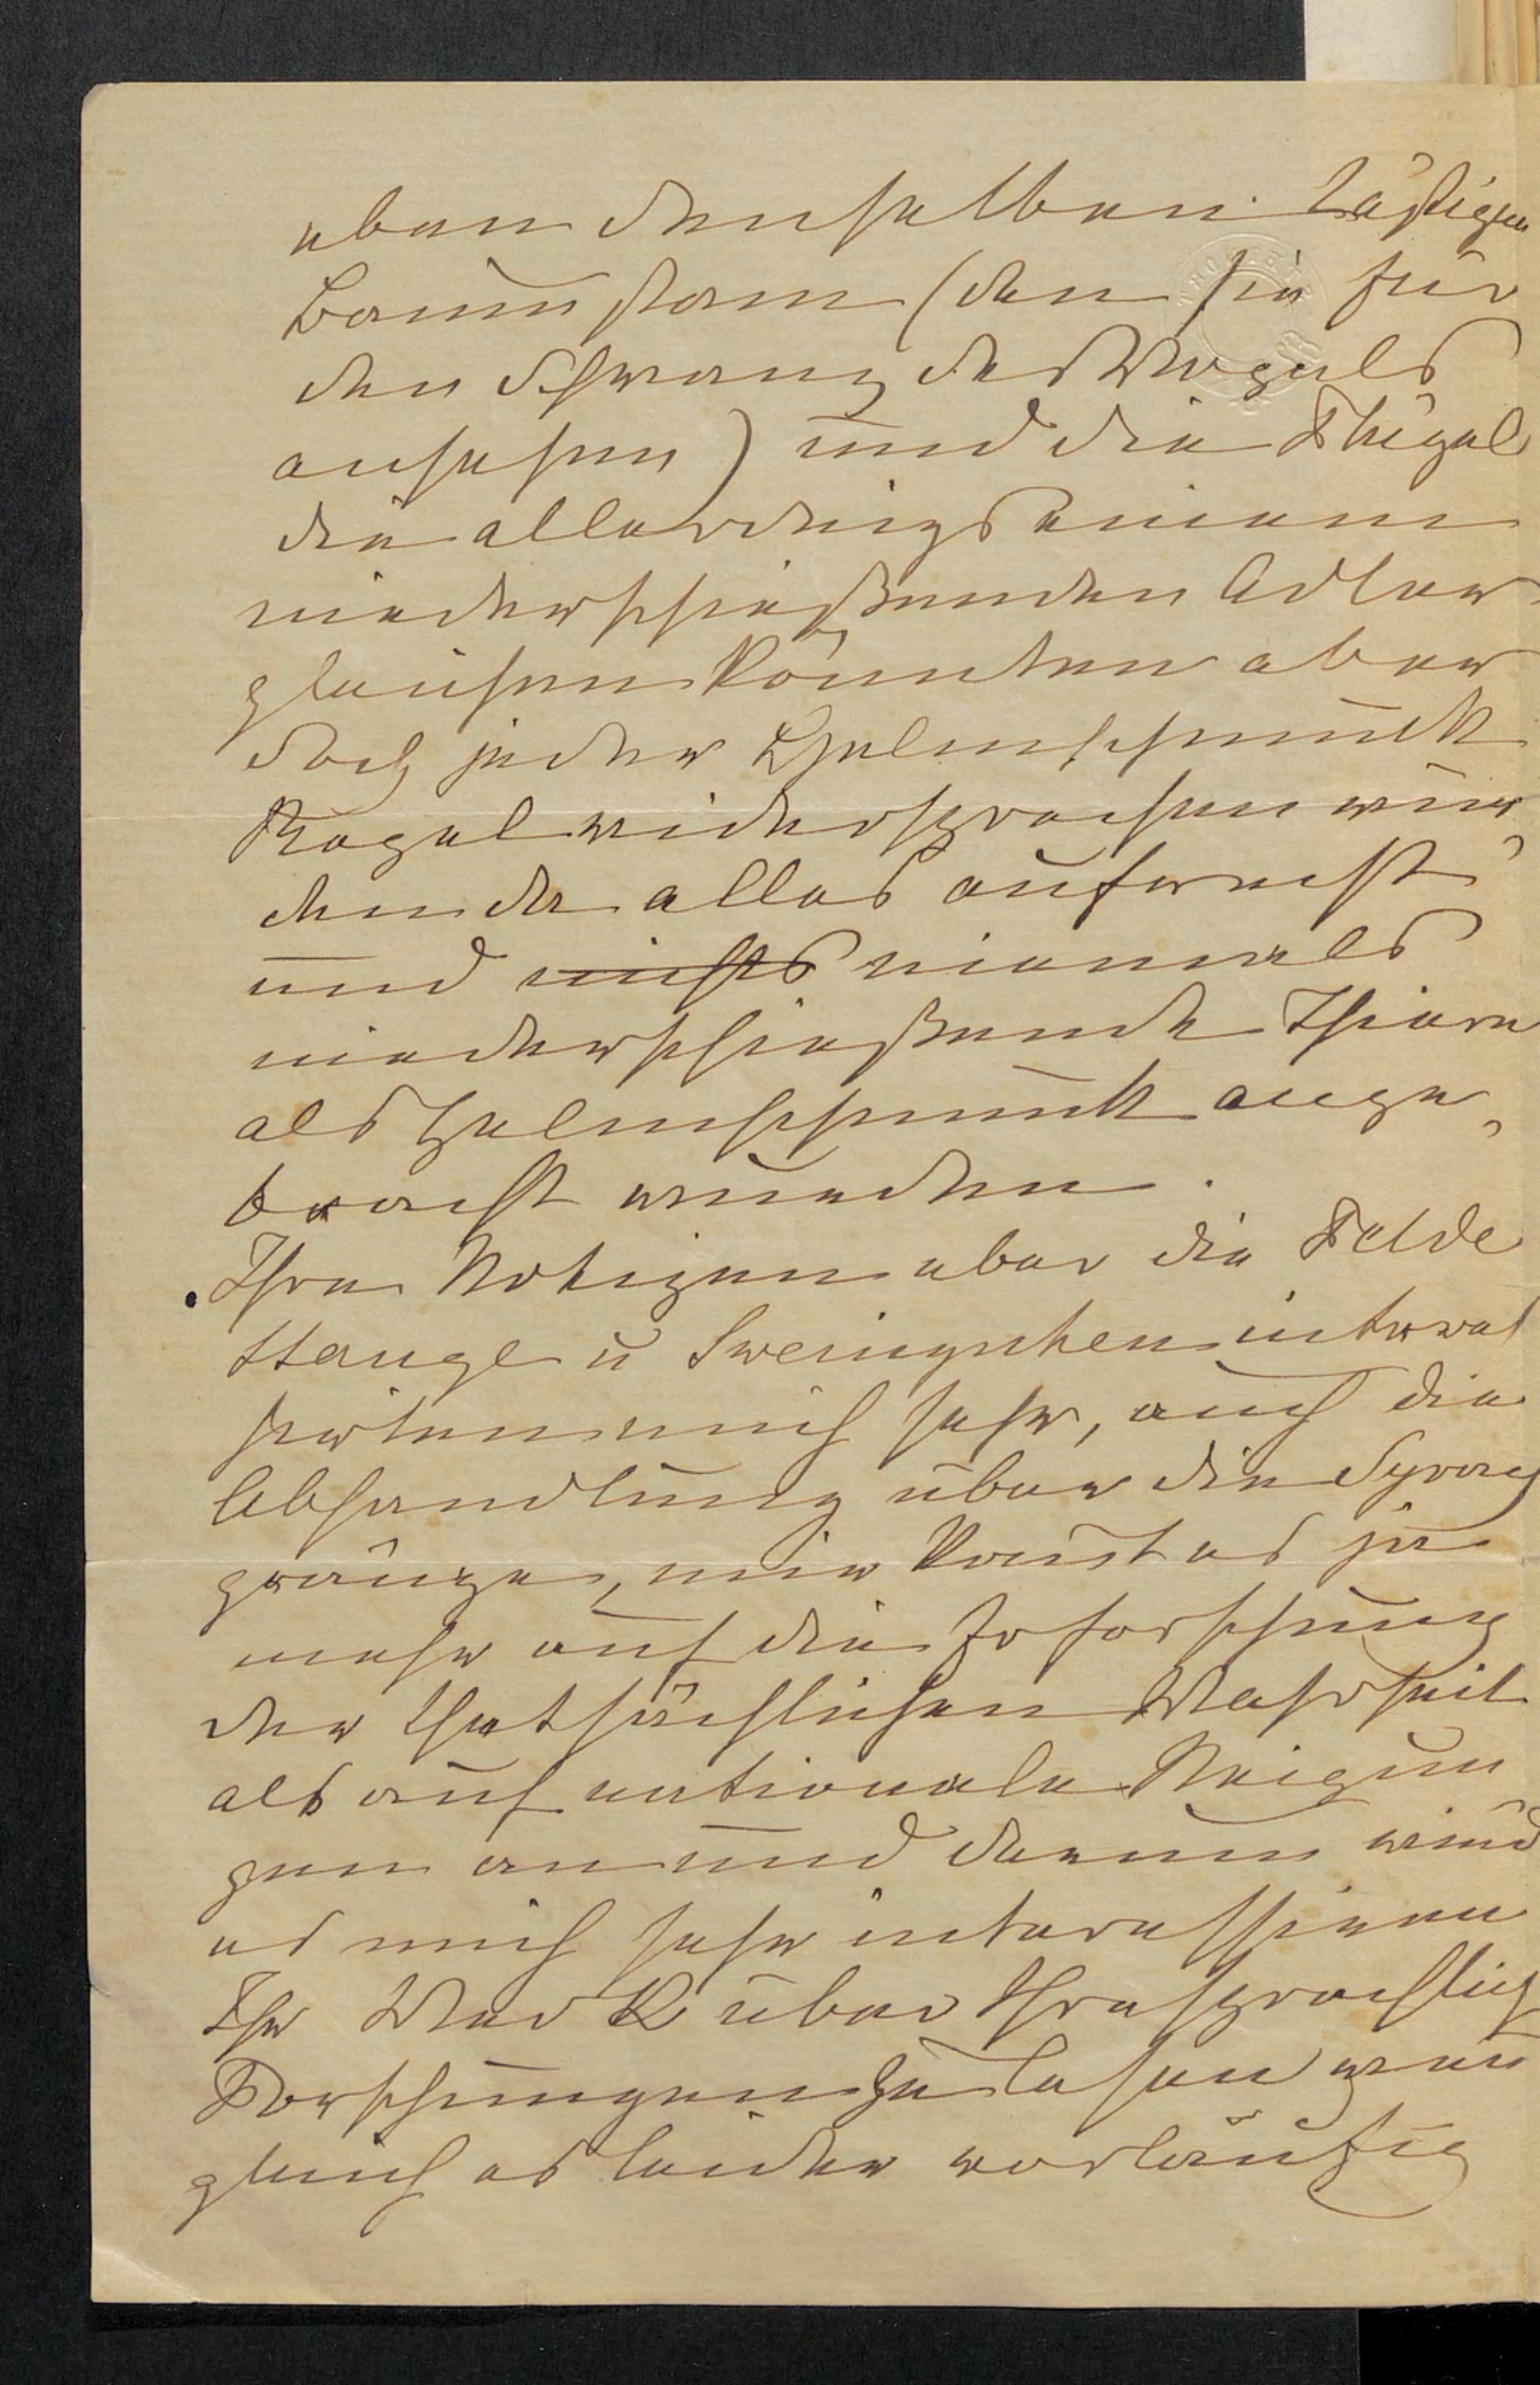 eben denselbenästigen
Baumstam (den sie für
den Schwanz des Vogels
ansehen) und die Flügel
die allerdings einem
niederschießenden Adler
gleichen könnten aber
doch jeder Helmschmuck
Regel widersprechen wür,
den da alles aufrecht
und nichts niemals
niederschießende Thiere
als Helmschmuck ange,
bracht wurden.
Ihre Notizen über die Felde
Stange u Sweingruben intres
sirten mich sehr, auch die
Abhandlung über die Sprach
gränze, mir komt es ja
mehr auf die Erforschung
der thatsächlichen Wahrheit
als auf nationale Neigun
gen an und darum wird
es mich sehr interessieren
Ihr Werk über Ihre sprachlich
Forschungen zu lesen wen
gleich es leider vorläufig